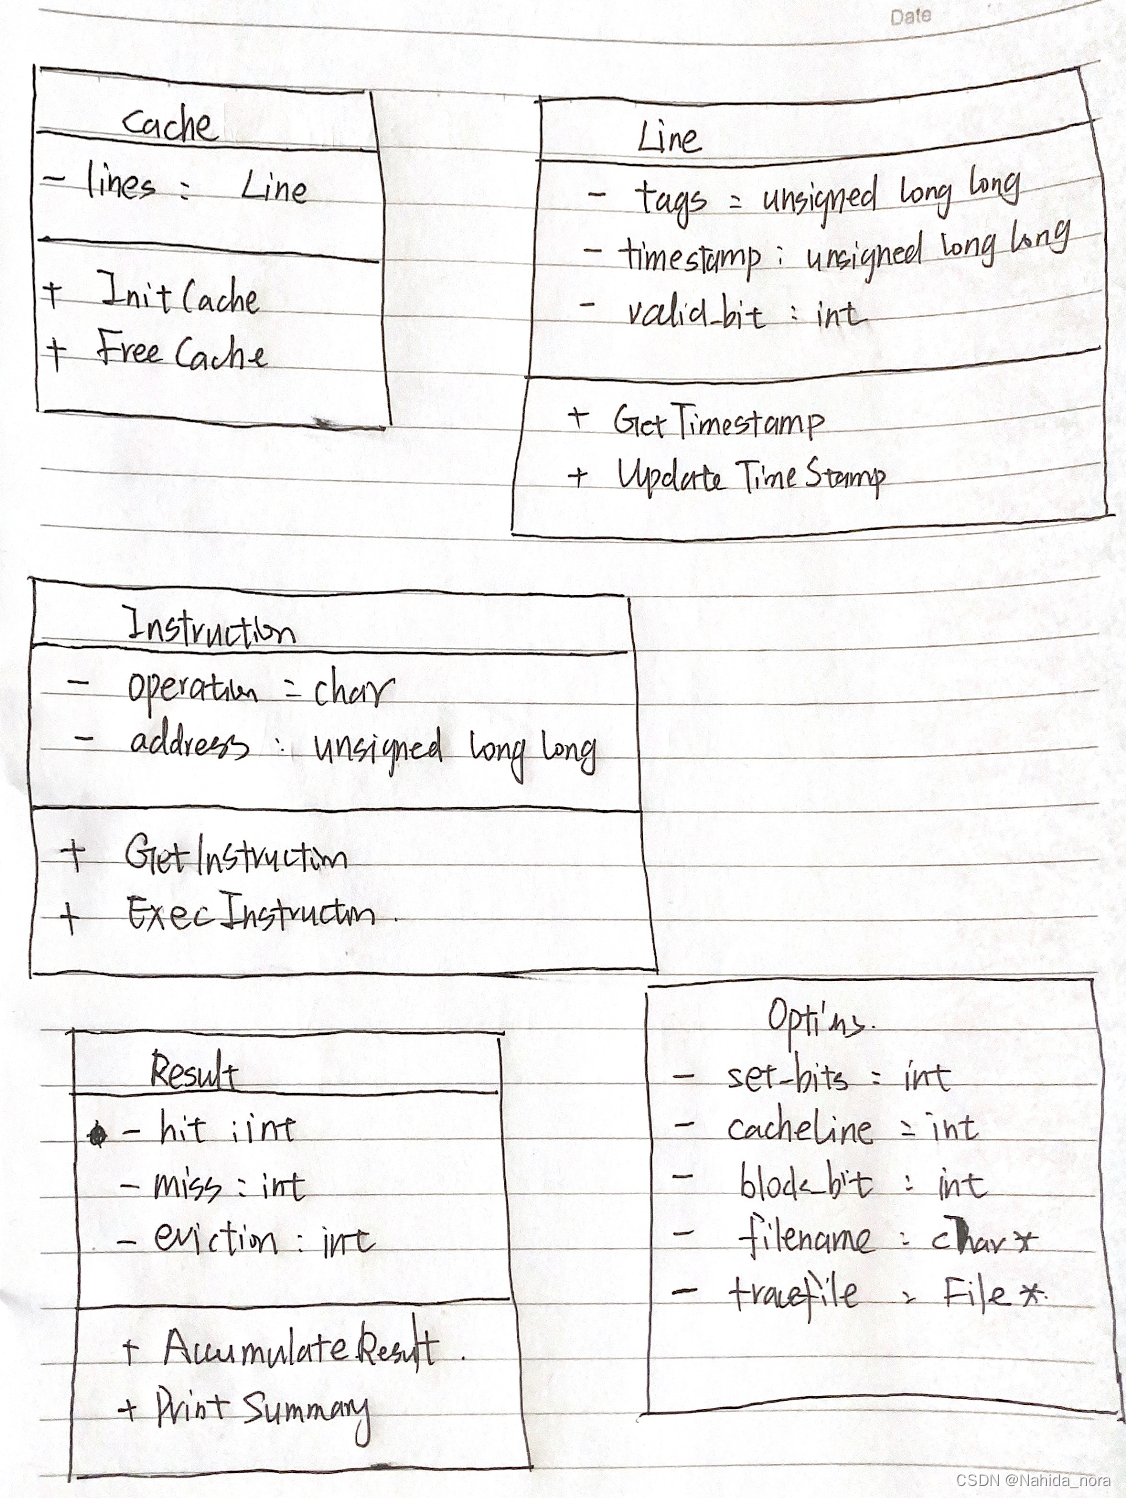 Date
Cache
- lines : Line
+ InitCache
+ FreeCache
Line
- tags : unsigned long long
- timestamp : unsigned long long
- valid_bit : int
+ GetTimestamp
+ UpdateTimeStamp
Instruction
- operation : char
- address : unsigned long long
+ GetInstruction
+ ExecInstruction.
Result
- hit : int
- miss : int
- eviction : int
+ AccumulateResult.
+ PrintSummary
Options.
- set_bits : int
- cacheline : int
- block_bit : int
- filename : char*
- tracefile : File*.
CSDN @Nahida_nora